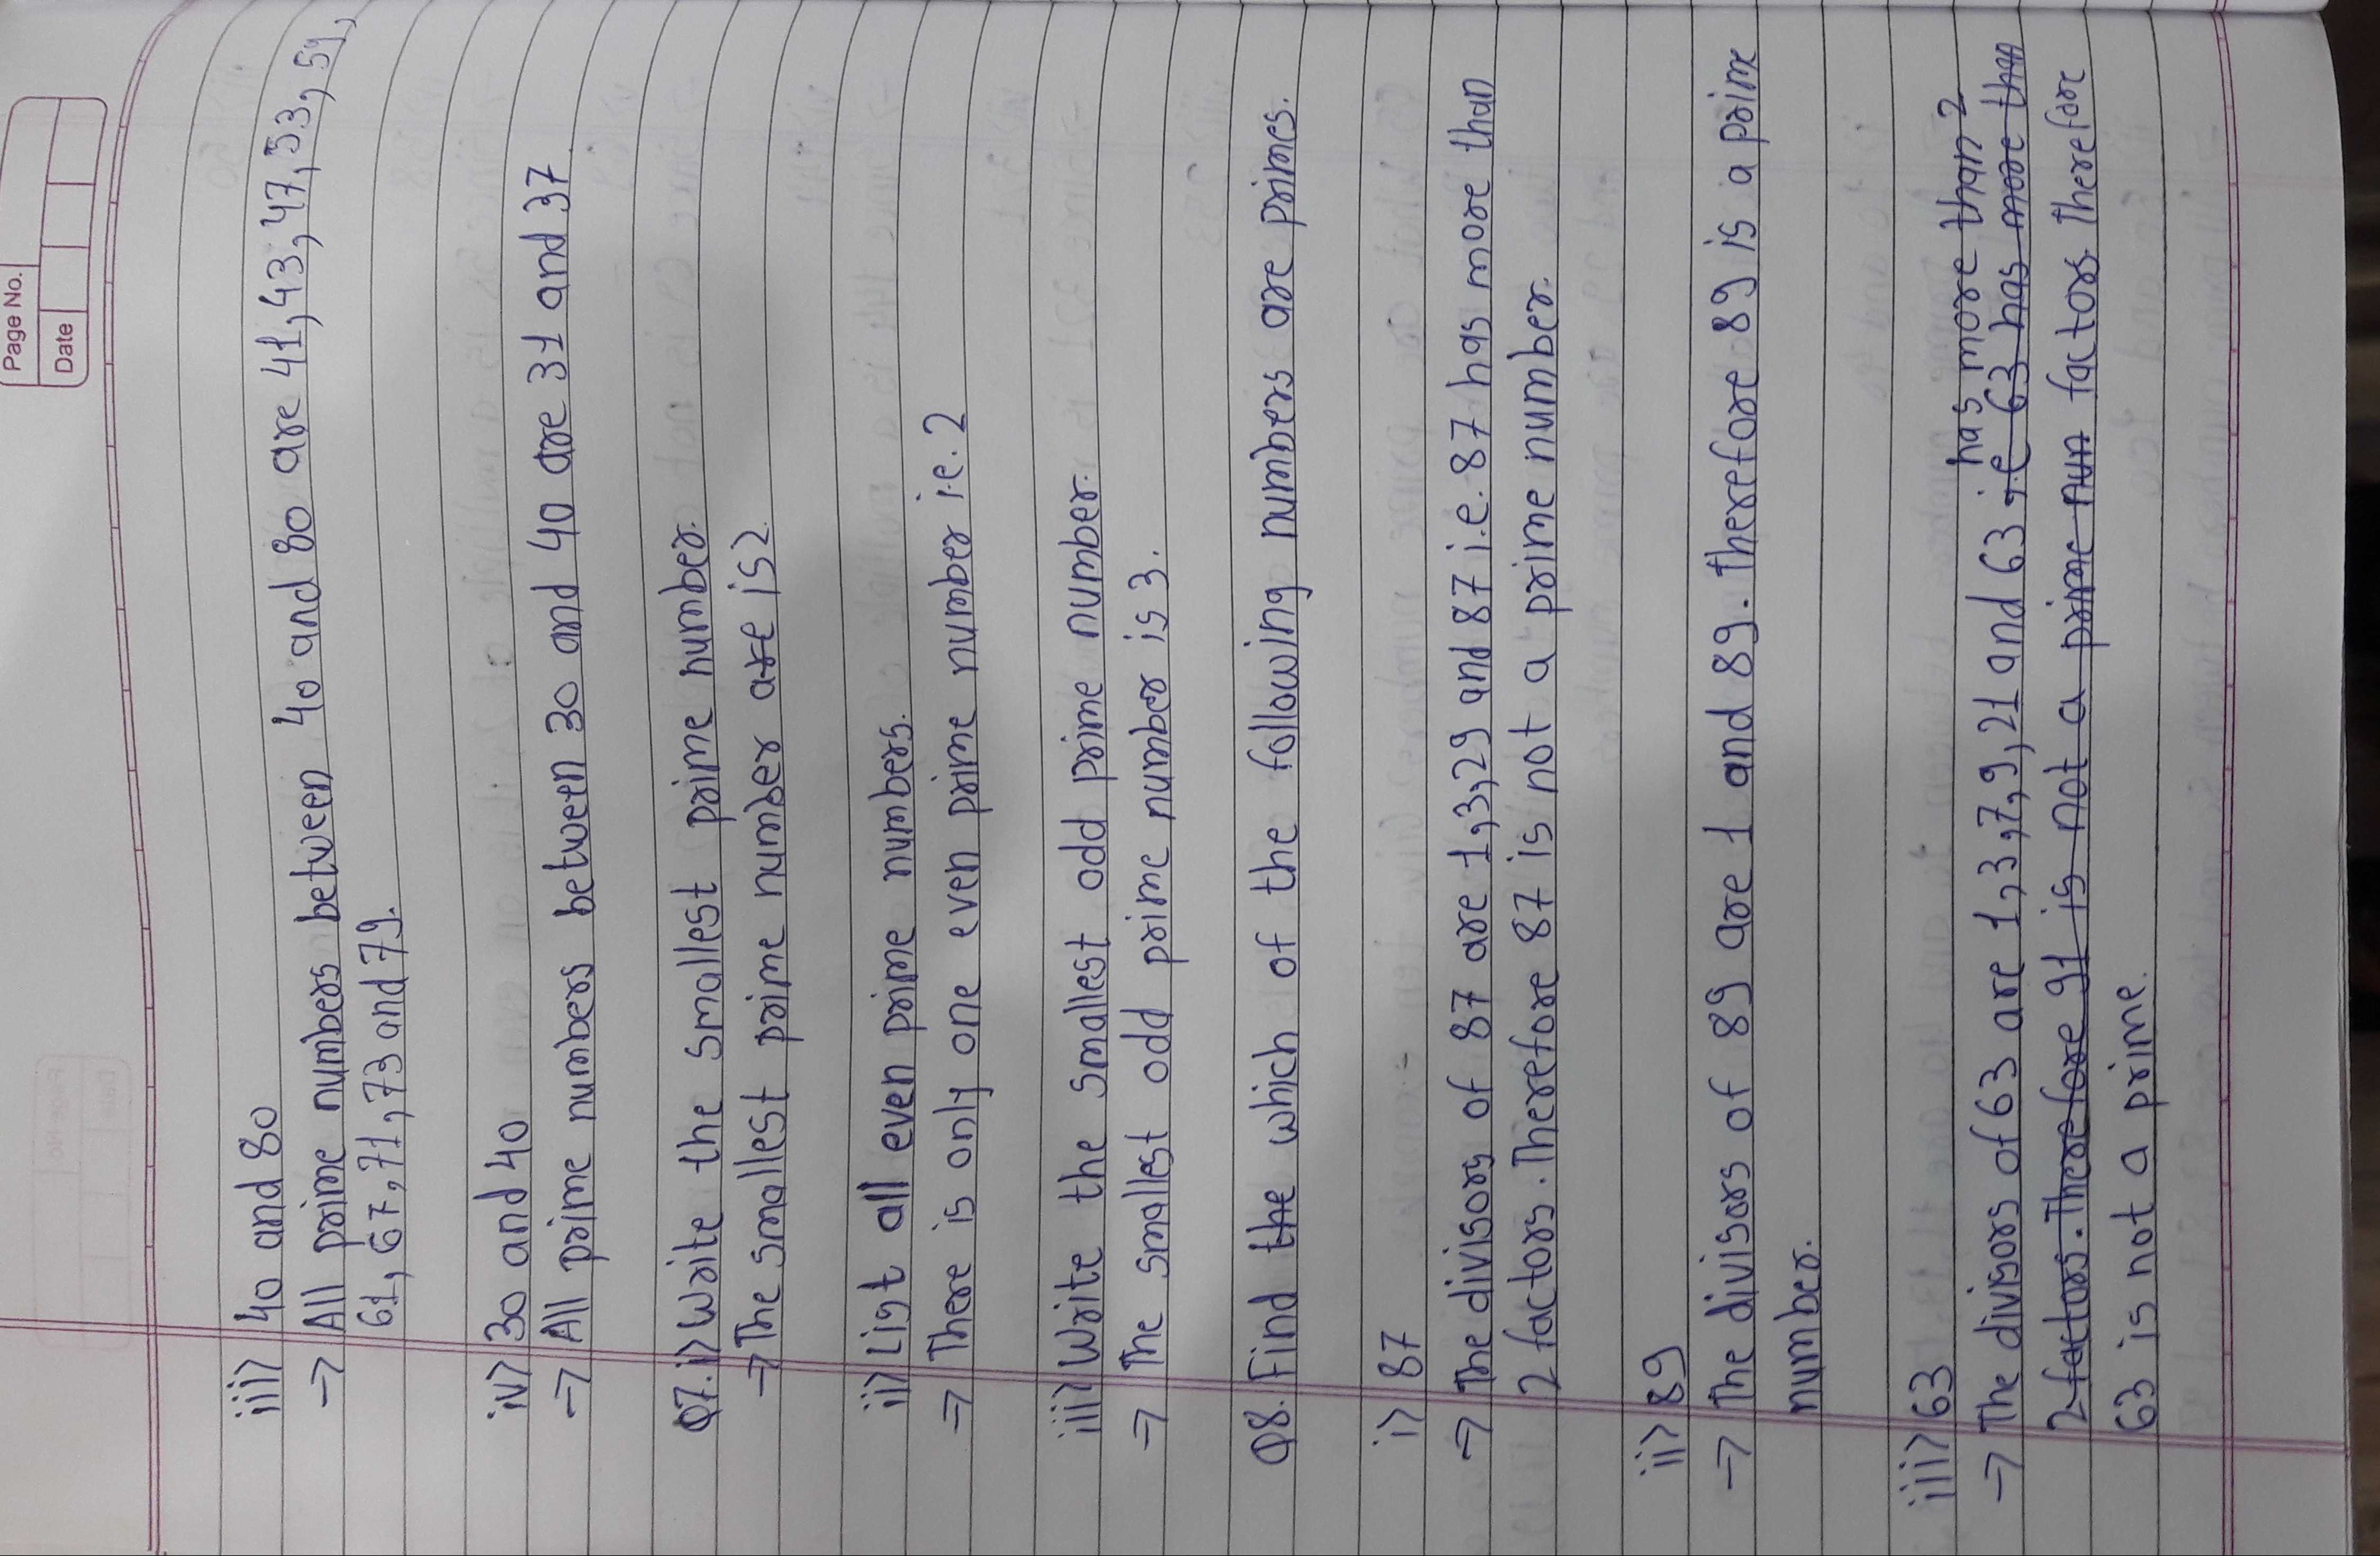 Page No.
Date
iii) 40 and 80
→ All prime numbers between 40 and 80 are 41, 43, 47, 53, 59,
61, 67, 71, 73 and 79.
iv) 30 and 40
→ All prime numbers between 30 and 40 are 31 and 37
Q7. i) Write the smallest prime number.
→ The smallest prime number are is 2.
ii) List all even prime numbers.
→ There is only one even prime number i.e. 2
iii) Write the smallest odd prime number.
→ The smallest odd prime number is 3.
Q8. Find the which of the following numbers are primes.
i) 87
→ The divisors of 87 are 1, 3, 29 and 87 i.e. 87 has more than
2 factors. Therefore 87 is not a prime number.
ii) 89
→ The divisors of 89 are 1 and 89. Therefore 89 is a prime
number.
iii) 63
has more than 2
→ The divisors of 63 are 1, 3, 7, 9, 21 and 63 i.e 63 has more than
2 factors. Therefore 91 is not a prime nun factors. Therefore
63 is not a prime.